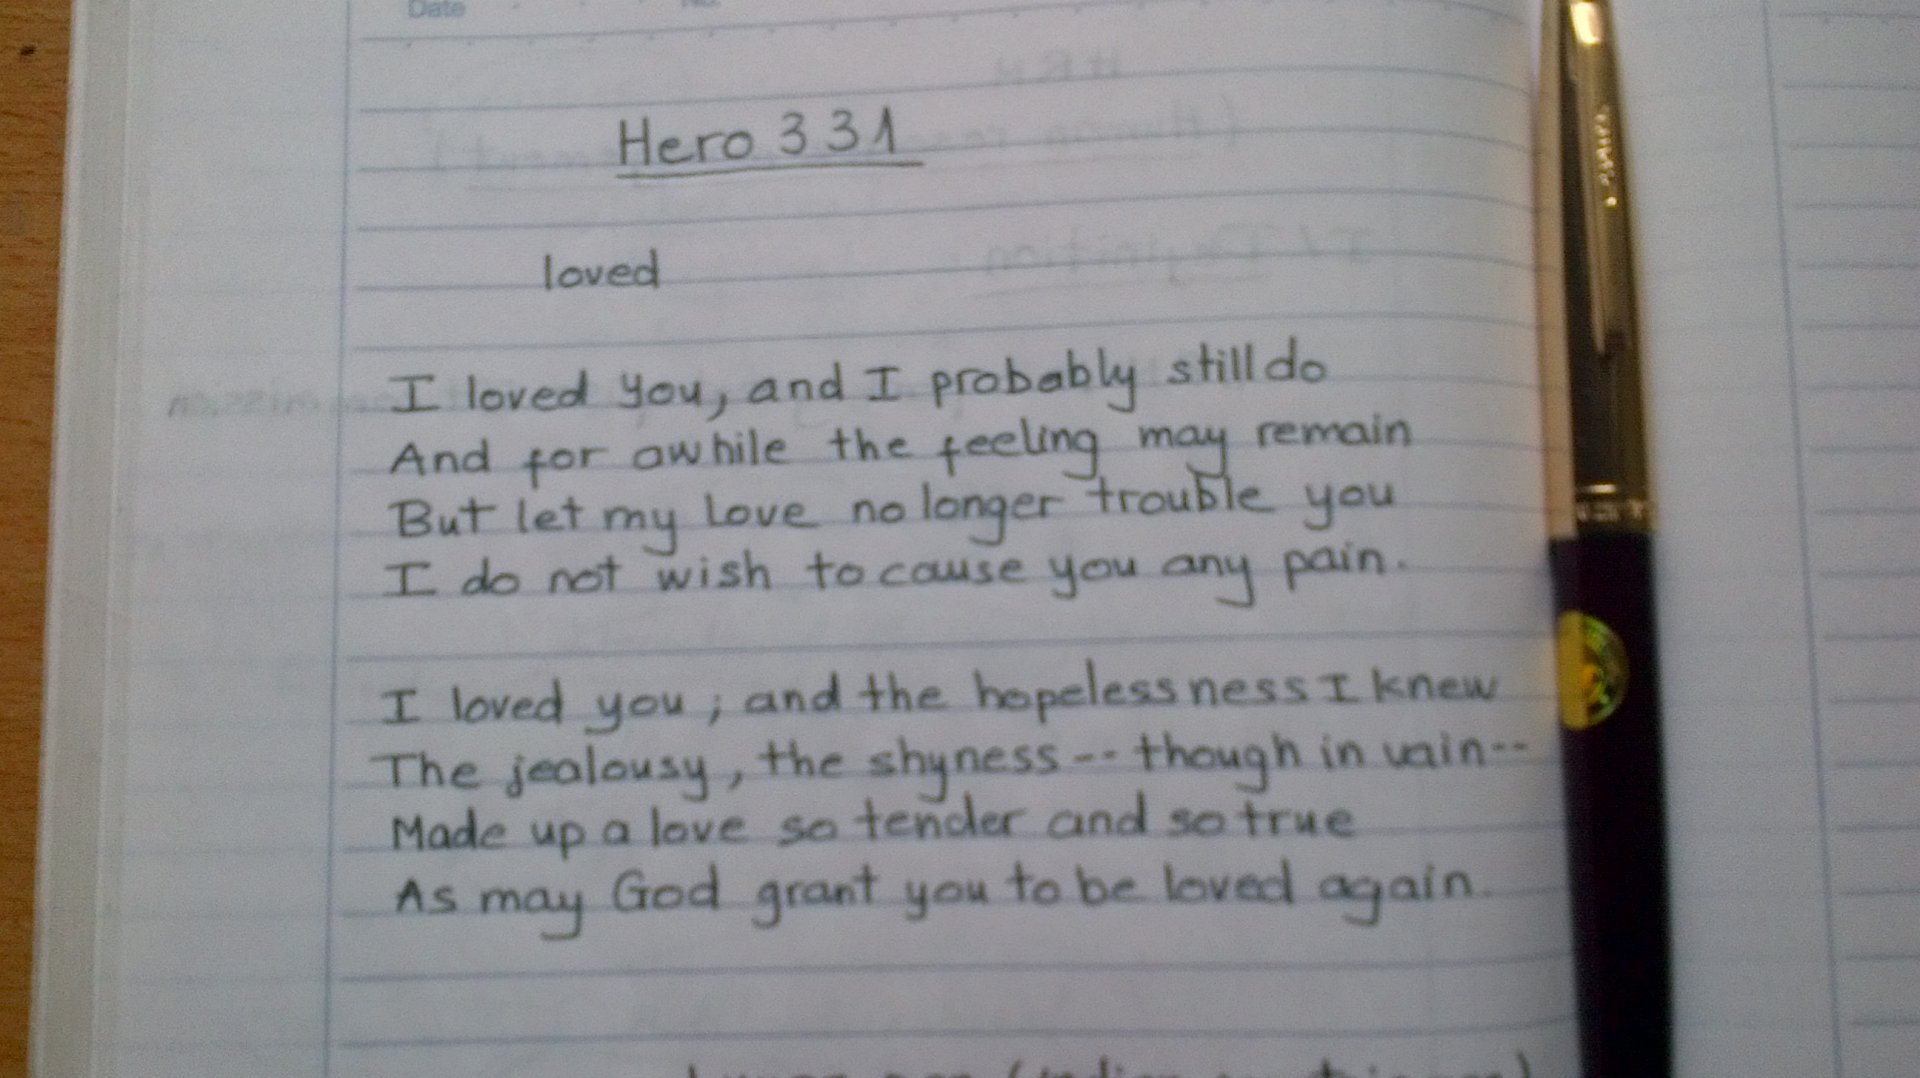 Date
Hero 331
loved
I loved you, and I probably still do
And for awhile the feeling may remain
But let my love no longer trouble you
I do not wish to cause you any pain.
I loved you; and the hopelessness I knew
The jealousy, the shyness -- though in vain --
Made up a love so tender and so true
As may God grant you to be loved again.